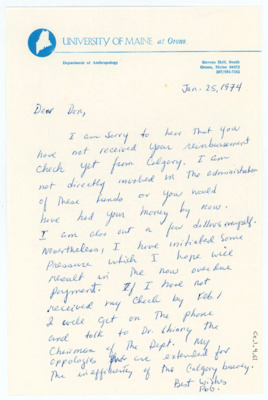 UNIVERSITY OF MAINE at Orono
Department of Anthropology
Stevens Hall, South
Orono, Maine 04473
Jan. 25, 1974
Dear Don,
I am sorry to hear that you
have not received your reimbursement
check yet from Calgary. I am
not directly involved in the administration
of these funds or you would
have had your money by now.
I am also out a few dollars myself.
Nevertheless, I have initiated some
pressure which I hope will
result in the now overdue
payment. If I have not
received my check by Feb 1
I will get on the phone
and talk to Dr. the
Chairman of the Dept. My
appologies are extended for
the inefficiency of the Calgary bureau.
Best wishes
Rob.